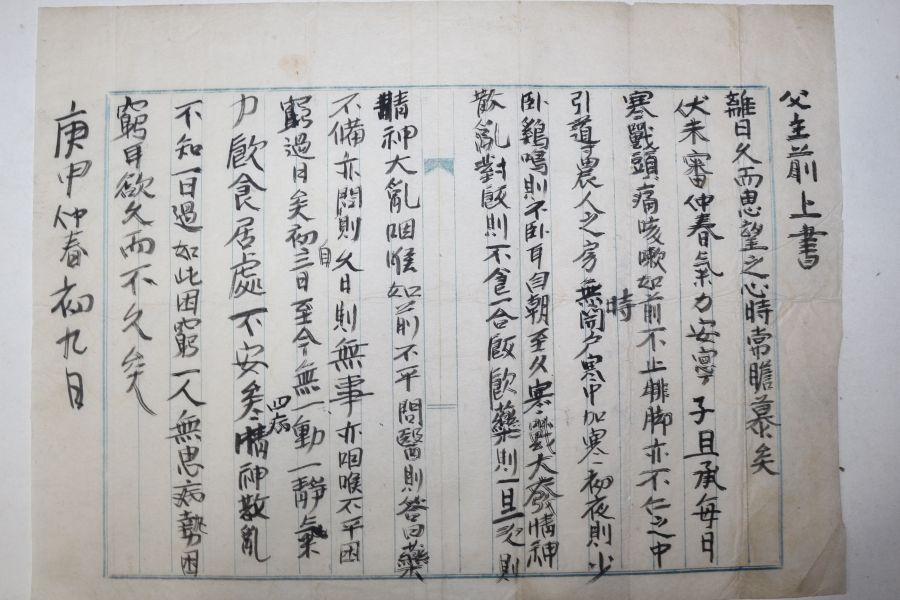 父主前上書
離日久而思望之心時常瞻慕矣
伏未審仲春氣力安寧子且承每日
寒戰頭痛咳嗽如前不上排脚亦不仁之中
引導農人之房無時開戶寒中加寒初夜則少
卧鷄鳴則不卧耳自朝至夕寒戰大發情神
散亂對飯則不食一合飯飲藥則一旦 則
精神大亂咽喉如前不平問醫則答曰藥
不備亦悶則自 日則無事亦咽喉不平困
窮過日矣初三日至今無一動一靜氣
力飮食居處不安矣四病 情神散亂
不知一日過如此困窮一人無患病勢困
窮耳欲久而不久矣
庚申仲春初九日